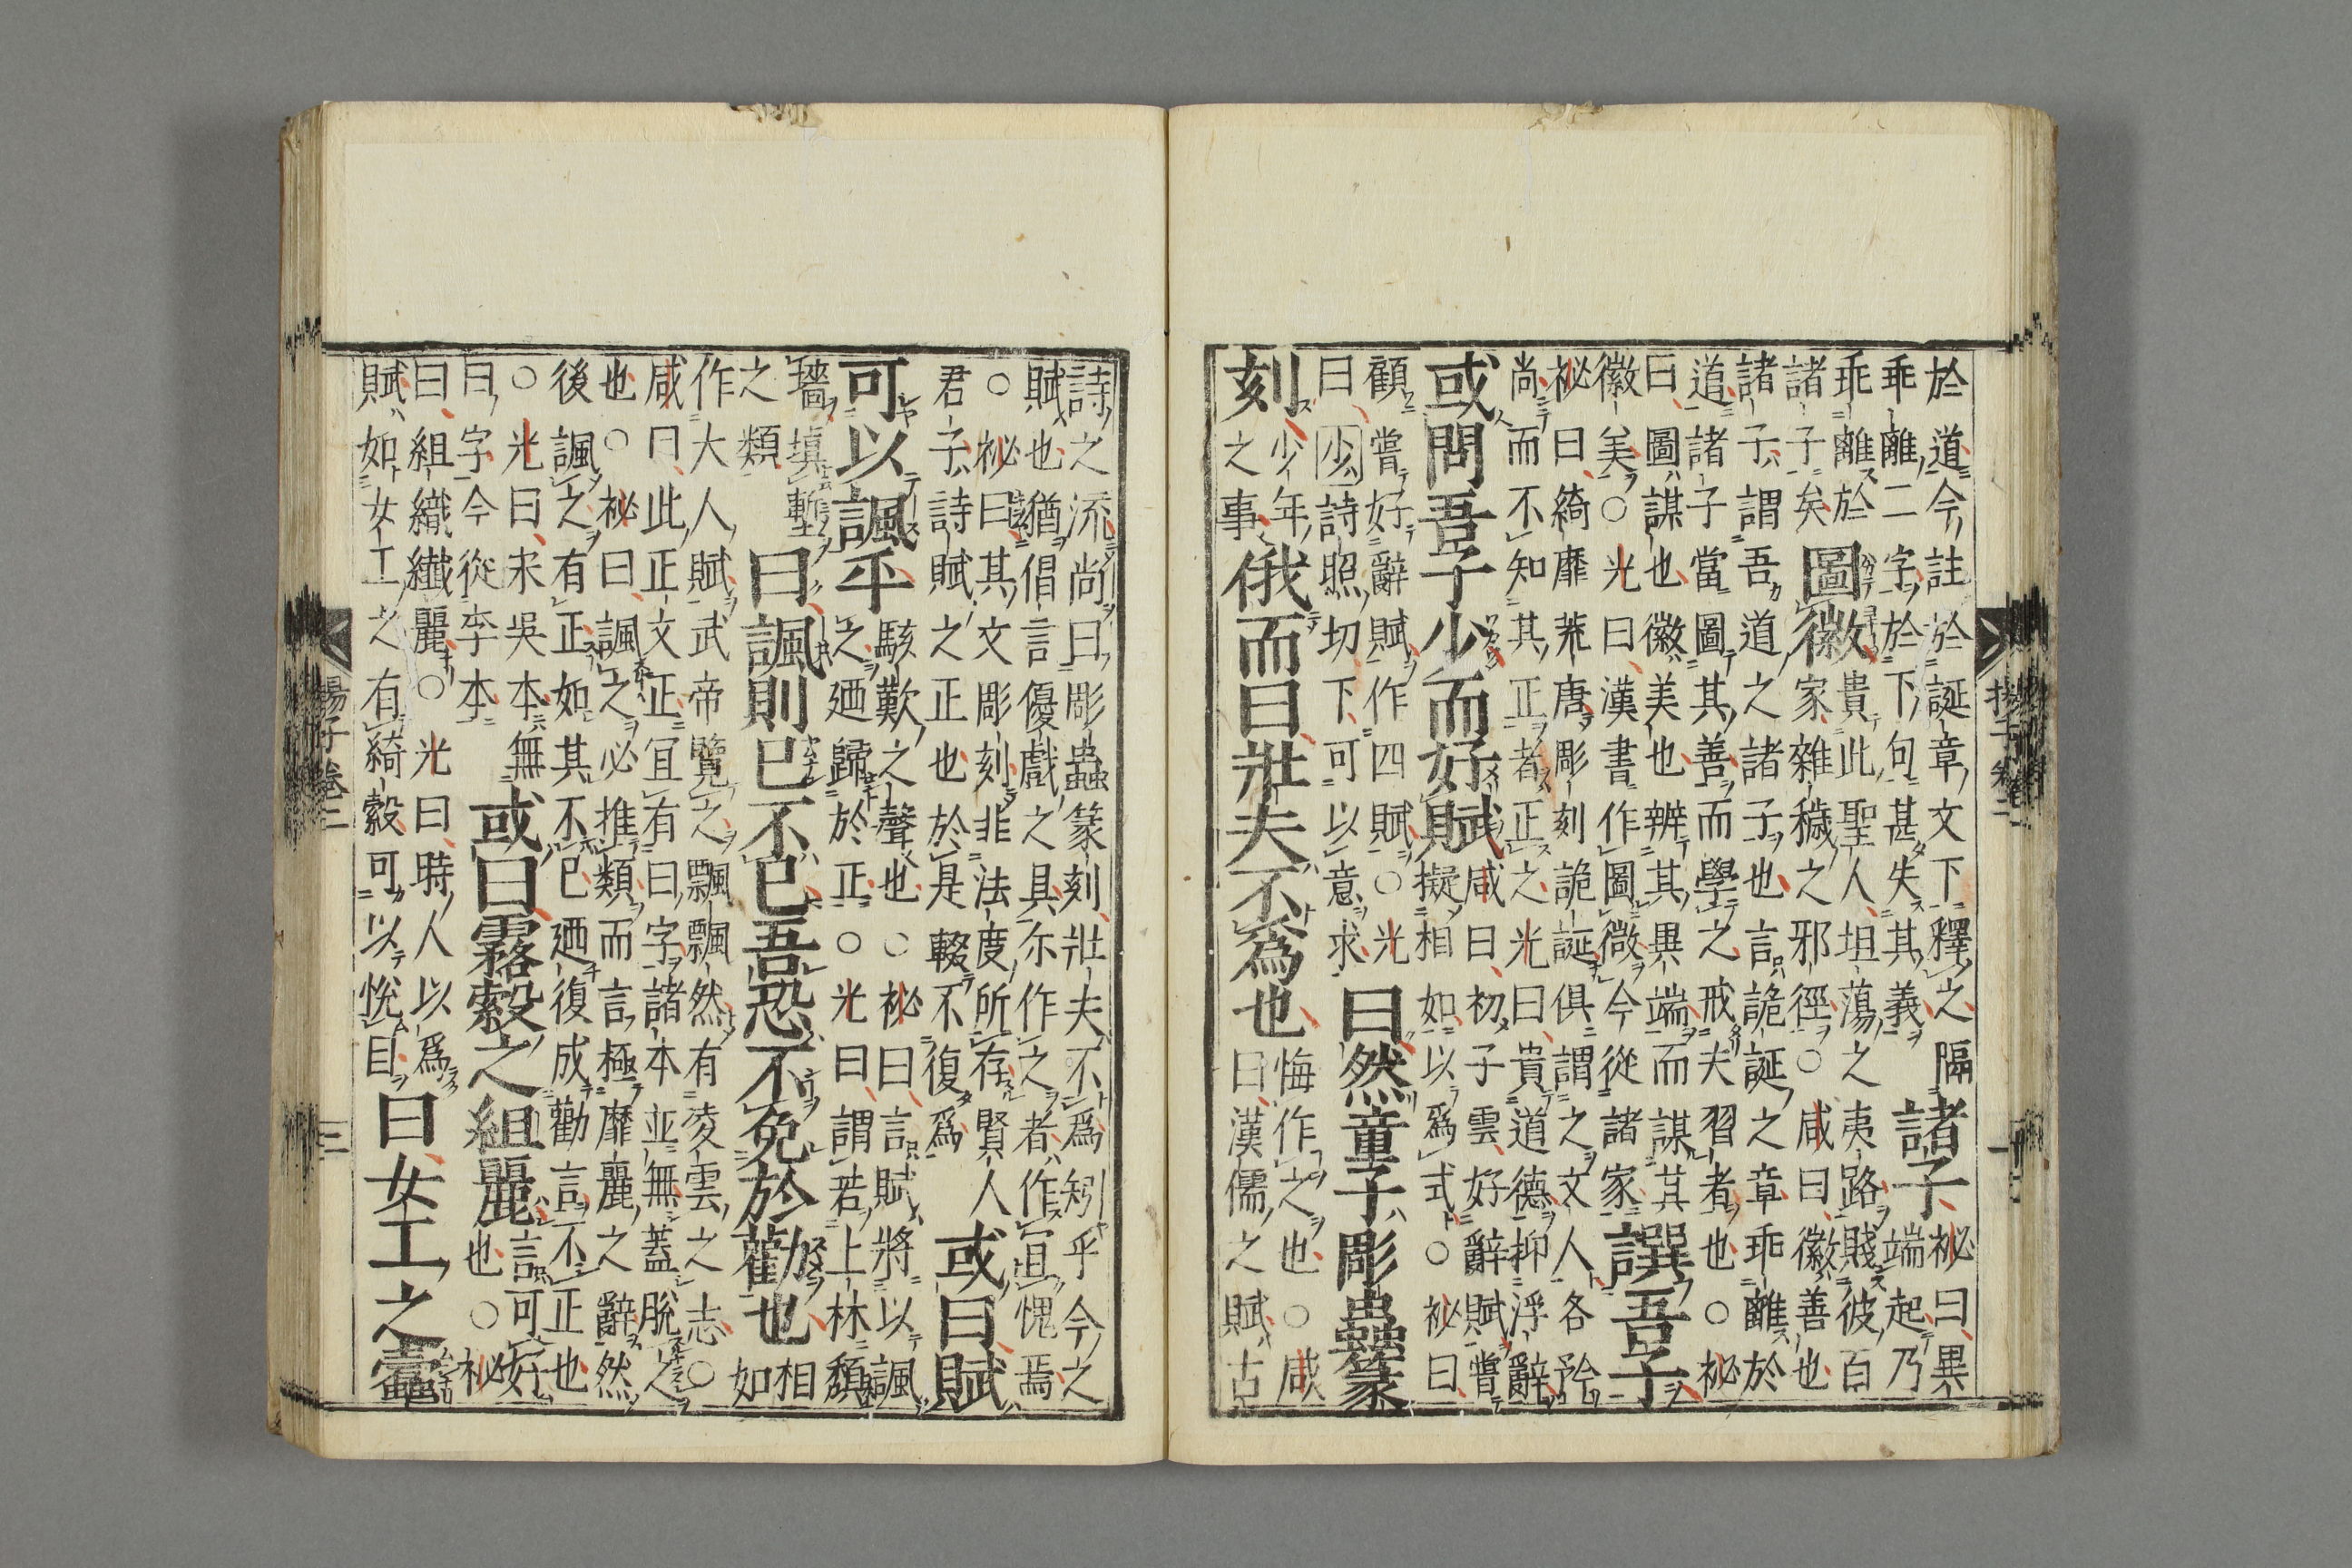 於道今註於誕章文下釋之隔諸子祕曰異
乖離二字於下句甚失其義端起乃
乖離於圖徽貴此聖人坦蕩之夷路賤彼百
諸子矣家雜穢之邪徑○咸曰徽善也
諸子謂吾道之諸子也言詭誕之章乖離於
道諸子當圖其善而學之戒夫習者也○祕
曰圖謀也徽美也辨其異端而謀其
徽美○光曰漢書作圖微今從諸家譔吾子
祕曰綺靡荒唐彫刻詭誕俱謂之文人各矜
尚而不知其正者正之光曰貴道德抑浮辭
或問吾子少而好賦咸曰初子雲好辭賦嘗
擬相如以爲式○祕曰
顧嘗好辭賦作四賦○光
曰少詩照切下可以意求曰然童子彫蟲篆
刻少年之事俄而曰壯夫不爲也悔作之也○咸
曰漢儒之賦古
詩之流尚曰彫蟲篆刻壯夫不爲矧乎今之
賦也猶倡言優戲之具尓作之者作宜愧焉
○祕曰其文彫刻非法度所存賢人
君子詩賦之正也於是輟不復爲或曰賦
可以諷乎駭歎之聲也○祕曰言賦將以諷
之廼歸於正○光曰謂若上林頽
墻填塹之類曰諷則已不已吾恐不免於勸也相如
作大人賦武帝覽之飄飄然有凌雲之志○
咸曰此正文正宜有曰字諸本並無蓋脫之
也○祕曰諷之必推類而言極靡麗之辭然
後諷之有正如其不已廼復成勸言不正也
○光曰宋吳本無
曰字今從李本或曰霧縠之組麗言可好也○祕
曰組織纎麗○光曰時人以爲
賦如女工之有綺縠可以悅目曰女工之蠹
揚子卷二
三